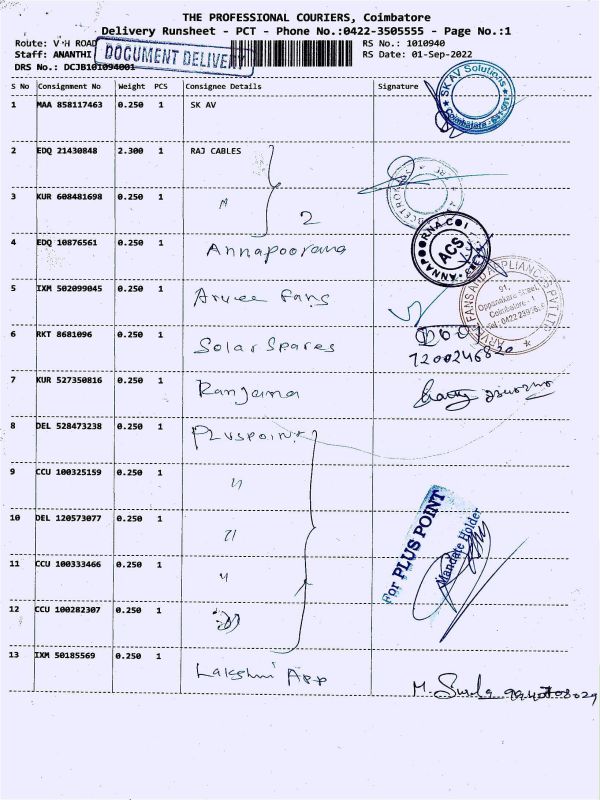 THE PROFESSIONAL COURIERS, Coimbatore
Delivery Runsheet - PCT - Phone No.:0422-3505555 - Page No.:1
Route: V H ROAD
RS No.: 1010940
Staff: ANANTHI
RS Date: 01-Sep-2022
DRS No.: DCJB101094001
DOCUMENT DELIVERY
S No Consignment No Weight PCS Consignee Details Signature
1 MAA 858117463 0.250 1 SK AV
SK AV Solutions
Coimbatore - 641 001
2 EDQ 21430848 2.300 1 RAJ CABLES
3 KUR 608481698 0.250 1 "
2
4 EDQ 10876561 0.250 1 Annapoorana
ANNAPOORNA COI
ACS
5 IXM 502099045 0.250 1 Arvee fans
ARVEE FANS AND APPLIANCES PVT LTD
91,
Oppanakara Street,
Coimbatore - 1
6 RKT 8681096 0.250 1 Solar Spares
7200246820
7 KUR 527350816 0.250 1 Ranjana
8 DEL 528473238 0.250 1 PLUSPOINT
9 CCU 100325159 0.250 1 "
10 DEL 120573077 0.250 1 "
11 CCU 100333466 0.250 1 "
12 CCU 100282307 0.250 1
For PLUS POINT
Mandate Holder
13 IXM 50185569 0.250 1 Lakshmi App